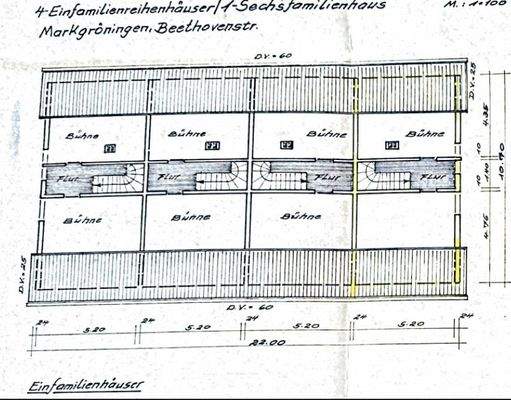 4-Einfamilienreihenhäuser/1-Sechsfamilienhaus M.: 1:100
Markgröningen, Beethovenstr.
D.V. = 60
D.V. = 25
Bühne Bühne Bühne Bühne
4.35
10
Flur Flur Flur Flur
1.40
10
10.90
Bühne Bühne Bühne
4.75
D.V. = 25
D.V. = 60
24 24 24 24 24
5.20 5.20 5.20 5.20
22.00
Einfamilienhäuser